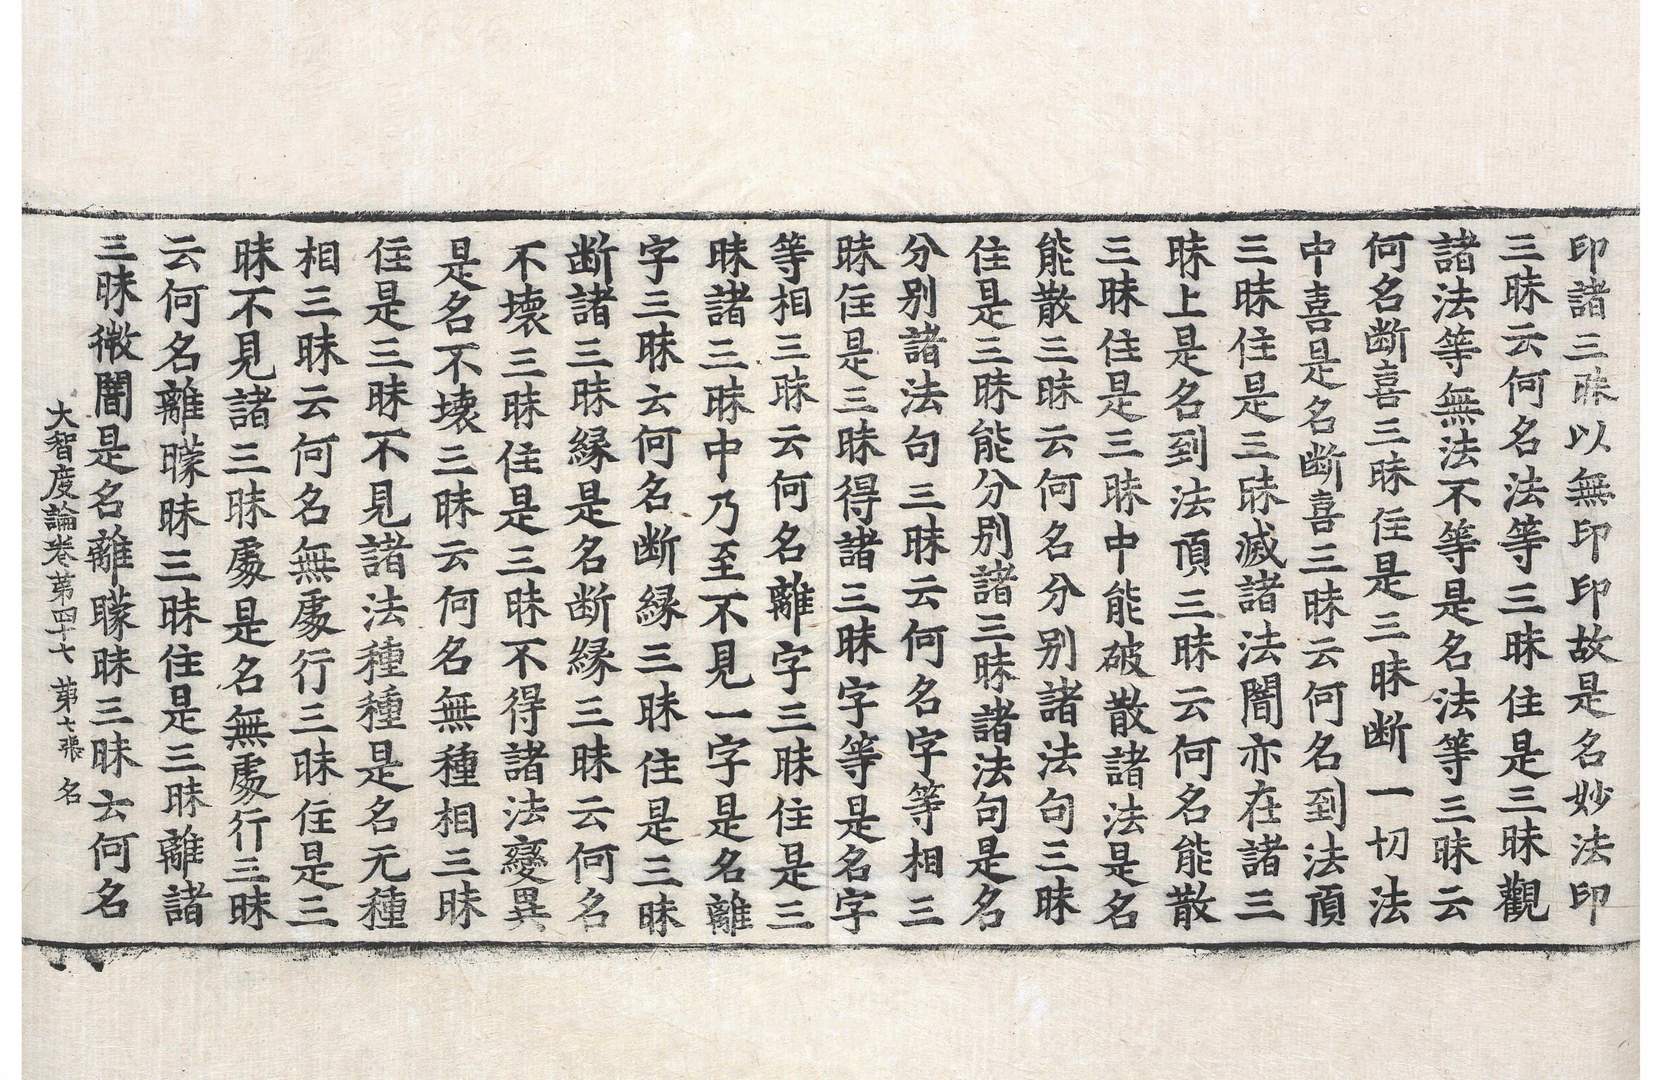 印諸三昧以無印印故是名妙法印
三昧云何名法等三昧住是三昧觀
諸法等無法不等是名法等三昧云
何名断喜三昧住是三昧断一切法
中喜是名断喜三昧云何名到法頂
三昧住是三昧滅諸法闇亦在諸三
昧上是名到法頂三昧云何名能散
三昧住是三昧中能破散諸法是名
能散三昧云何名分别諸法句三昧
住是三昧能分别諸三昧諸法句是名
分别諸法句三昧云何名字等相三
昧住是三昧得諸三昧字等是名字
等相三昧云何名離字三昧住是三
昧諸三昧中乃至不見一字是名離
字三昧云何名断縁三昧住是三昧
断諸三昧縁是名断縁三昧云何名
不壊三昧住是三昧不得諸法變異
是名不壊三昧云何名無種相三昧
住是三昧不見諸法種種是名无種
相三昧云何名無處行三昧住是三
昧不見諸三昧處是名無處行三昧
云何名離曚昧三昧住是三昧離諸
三昧微闇是名離曚昧三昧云何名
大智度論卷第四十七 第七張 名